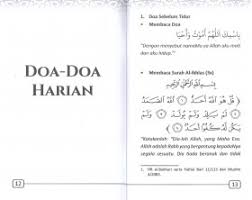 DOA-DOA
HARIAN
12
1. Doa Sebelum Tidur
• Membaca Doa
بِاسْمِكَ اللَّهُمَّ أَمُوْتُ وَأَحْيَا
"Dengan menyebut namaMu ya Allah aku mati
dan aku hidup."
• Membaca Surah Al-Ikhlas (3x)
بِسْمِ اللَّهِ الرَّحْمَنِ الرَّحِيمِ
قُلْ هُوَ اللَّهُ أَحَدٌ ۝ اللَّهُ الصَّمَدُ ۝ لَمْ
يَلِدْ وَلَمْ يُولَدْ ۝ وَلَمْ
يَكُنْ لَهُ كُفُوًا أَحَدٌ ۝
"Katakanlah: "Dia-lah Allah, yang Maha Esa,
Allah adalah Rabb yang bergantung kepadaNya
segala sesuatu. Dia tiada beranak dan tidak
1. HR
13